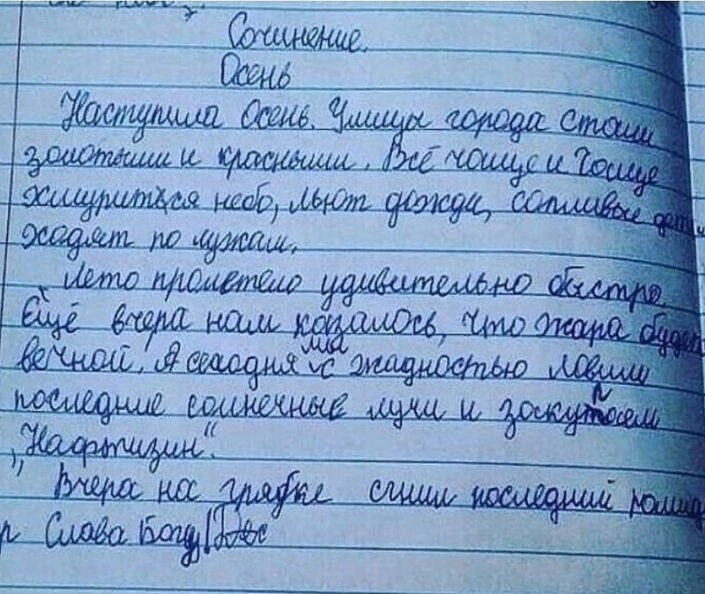 Сочинение.
Осень
Наступила Осень. Улицы города стали
золотыми и красными. Всё чаще и чаще
хмуриться небо, льют дожди, сопливые дети
ходят по лужам.
Лето пролетело удивительно быстро.
Ещё вчера нам казалось, что жара будет
вечной. А сегодня мы с жадностью ловим
последние солнечные лучи и закупаем
„Нафтизин".
Вчера на грядке сгнил последний помидо
р Слава Богу!